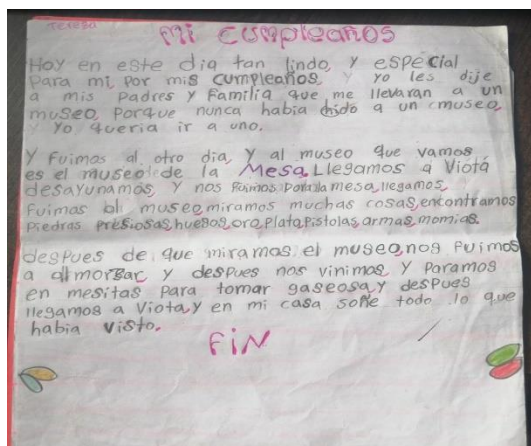 Teresa
Mi cumpleaños
Hoy en este dia tan lindo, y especial
Para mi, por mis cumpleaños, y yo les dije
a mis Padres y Familia que me llevaran a un
museo, Porque nunca habia hido a un museo,
y Yo queria ir a uno.
Y Fuimos al otro dia, Y al museo que vamos
es el museo de la Mesa. Llegamos a Viotá
desayunamos, Y nos Fuimos Para la mesa, llegamos,
Fuimos al museo, miramos muchas cosas, encontramos
Piedras Presiosas, huesos, oro, Plata, Pistolas, armas, momias.
despues de que miramos el museo, nos Fuimos
a almorsar y despues nos vinimos y Paramos
en mesitas Para tomar gaseosa, y despues
llegamos a Viota, y en mi casa soñe todo lo que
habia visto.
FiN